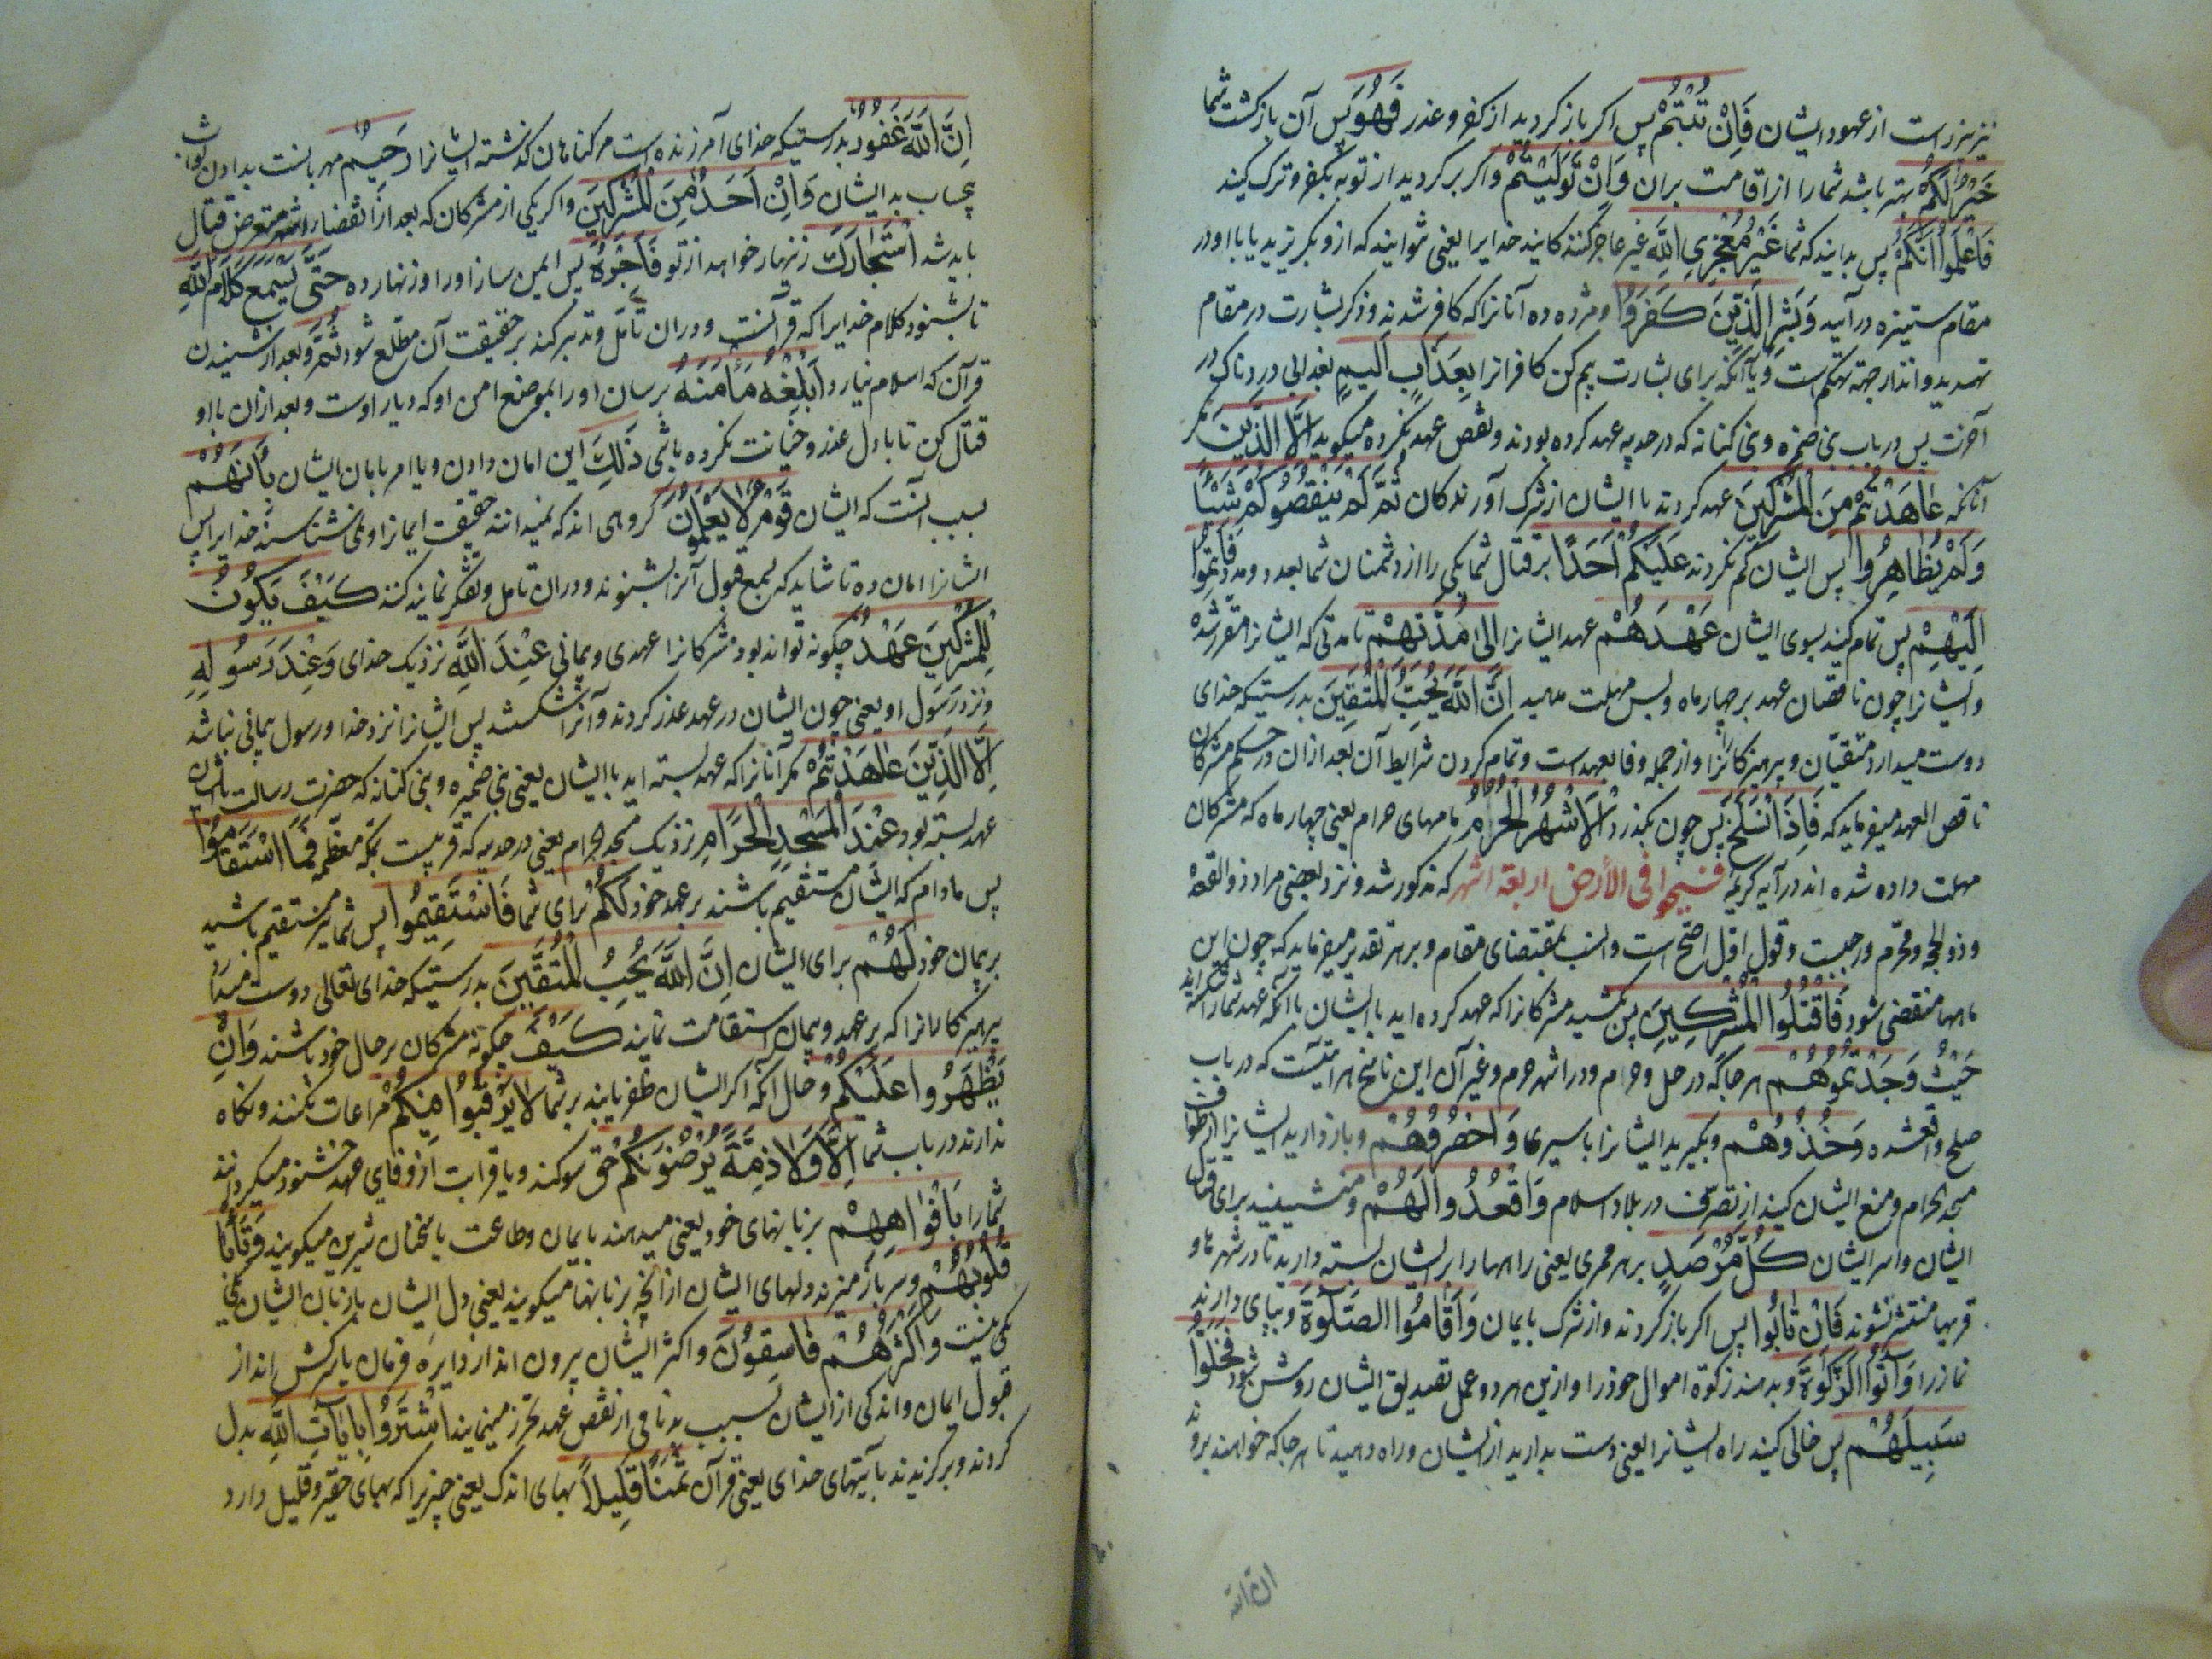 نیز بیزارست از عهود ایشان فَاِنْ تُبْتُمْ پس اکر بازکردید از کفر و عذر فَهُوَ پس آن بازکشت شما
خَیْرٌ لَکُمْ بهتر باشد شما را از اقامت بران وَاِنْ تَوَلَّیْتُمْ و اکر برکردید از توبه بکفر و ترک کیند
فَاعْلَمُوا اَنَّکُمْ پس بدانید که شما غَیْرُ مُعْجِزِی اللّٰهِ غیر عاجز کنندکانید خدایرا یعنی نتوانید که ازو بکریزید یا با او در
مقام ستیزه درآیید وَبَشِّرِ الَّذِینَ کَفَرُوا و مژده ده آنانرا که کافر شدند و ذکر بشارت در مقام
تهدید و انذار جهة تهکم است و یا آنکه برای بشارت بیم کن کافرانرا بِعَذَابٍ اَلِیمٍ بعذابی دردناک در
آخرت پس در باب بنی ضمره و بنی کنانه که در حدیبیه عهد کرده بودند و نقض عهد نکرده میکوید اِلَّا الَّذِینَ مکر
آنانکه عَاهَدْتُمْ مِنَ الْمُشْرِکِینَ عهد کردند با ایشان از شرک آورندکان ثُمَّ لَمْ یَنْقُصُوکُمْ شَیْئًا
وَلَمْ یُظَاهِرُوا پس ایشان کم نکردند عَلَیْکُمْ اَحَدًا بر قتال شما یکی را از دشمنان شما بعدد و مدد فَاَتِمُّوا
اِلَیْهِمْ پس تمام کنید بسوی ایشان عَهْدَهُمْ عهد ایشانرا اِلٰی مُدَّتِهِمْ تا مدتی که ایشانرا مقرر شده
و ایشانرا چون ناقضان عهد بر چهار ماه و بس مهلت مدهید اِنَّ اللّٰهَ یُحِبُّ الْمُتَّقِینَ بدرستیکه خدای
دوست میدارد متقیان و پرهیزکارانرا و از جمله وفا بعهدست و تمام کردن شرایط آن بعد ازان در حکم مشرکان
ناقض العهد میفرماید که فَاِذَا انْسَلَخَ پس چون بکذرد الْاَشْهُرُ الْحُرُمُ ماههای حرام یعنی چهار ماه که مشرکان
مهلت داده شده اند در آیه کریمه فسیحوا فی الأرض اربعة اشهر که مذکور شد و نزد بعضی مراد ذوالقعده
و ذوالحجه و محرم و رجبست و قول اول اصح است و انسب بمقتضای مقام و بر هر تقدیر میفرماید که چون این
ماهها منقضی شود فَاقْتُلُوا الْمُشْرِکِینَ پس بکشید مشرکانرا که عهد کرده اید با ایشان یا آنکه عهد شما را شکسته اند
حَیْثُ وَجَدْتُمُوهُمْ هر جا که در حل و حرام و در اشهر حرم و غیر آن این ناسخ هر آیتیست که در باب
صلح واقع شده وَخُذُوهُمْ و بکیرید ایشانرا باسیری وَاحْصُرُوهُمْ و باز دارید ایشانرا از طواف
مسجد الحرام و منع ایشان کنید از تصرف در بلاد اسلام وَاقْعُدُوا لَهُمْ و بنشینید برای قتال
ایشان و اسر ایشان کُلَّ مَرْصَدٍ بر هر ممری یعنی راهها را بر ایشان بسته دارید تا در شهرها و
قریها منتشر نشوند فَاِنْ تَابُوا پس اکر بازکردند و از شرک بایمان وَاَقَامُوا الصَّلٰوةَ و بپای دارند
نماز را وَآتَوُا الزَّکٰوةَ و بدهند زکوة اموال خود را و ازین هر دو عمل تصدیق ایشان روشن شود فَخَلُّوا
سَبِیلَهُمْ پس خالی کنید راه ایشانرا یعنی دست بدارید از ایشان و راه دهید تا هر جا که خواهند بروند
ان الله
اِنَّ اللّٰهَ غَفُورٌ بدرستیکه خدای آمرزنده است مر کناهان کذشته ایشانرا رَحِیمٌ مهربانست بدادن ثواب
بیحساب بدیشان وَاِنْ اَحَدٌ مِنَ الْمُشْرِکِینَ و اکر یکی از مشرکان که بعد از انقضاء اشهر متعرض قتال
باید شد اسْتَجَارَكَ زنهار خواهد از تو فَاَجِرْهُ پس ایمن ساز او را و زنهار ده حَتّٰی یَسْمَعَ کَلَامَ اللّٰهِ
تا بشنود کلام خدایرا که قرآنست و دران تأمل و تدبر کند بر حقیقت آن مطلع شود ثُمَّ و بعد از شنیدن
قرآن که اسلام نیارد اَبْلِغْهُ مَأْمَنَهُ برسان او را بموضع امن او که دیار اوست و بعد ازان با او
قتال کن تا بادل عذر و خیانت نکرده باشی ذٰلِكَ این امان دادن و یا امر بامان ایشان بِاَنَّهُمْ
بسبب آنست که ایشان قَوْمٌ لَا یَعْلَمُونَ کروهی اند که نمیدانند حقیقت ایمانرا و نمی شناسند خدایرا پس
ایشانرا امان ده تا شاید که بسمع قبول آنرا بشنوند و دران تامل و تفکر نمایند کنند کَیْفَ یَکُونُ
لِلْمُشْرِکِینَ عَهْدٌ چکونه تواند بود مشرکانرا عهدی و پیمانی عِنْدَ اللّٰهِ نزدیک خدای وَعِنْدَ رَسُولِهِ
و نزد رسول او یعنی چون ایشان در عهد عذر کردند و آنرا شکستند پس ایشانرا نزد خدا و رسول پیمانی نباشد
اِلَّا الَّذِینَ عَاهَدْتُمْ مکر آنانرا که عهد بسته اید با ایشان یعنی بنی ضمیره و بنی کنانه که حضرت رسالت با ایشان
عهد بسته بود عِنْدَ الْمَسْجِدِ الْحَرَامِ نزدیک مسجد الحرام یعنی در حدیبیه که قریبست بمکه معظمه فَمَا اسْتَقَامُوا
پس مادام که ایشان مستقیم باشند بر عهد خود لَکُمْ برای شما فَاسْتَقِیمُوا پس شما نیز مستقیم باشید
بر پیمان خود لَهُمْ برای ایشان اِنَّ اللّٰهَ یُحِبُّ الْمُتَّقِینَ بدرستیکه خدای تعالی دوست میدارد
پرهیزکارانرا که بر عهد و پیمان استقامت نمایند کَیْفَ چکونه مشرکان بر حال خود باشند وَاِنْ
یَظْهَرُوا عَلَیْکُمْ و حال آنکه اکر ایشان ظفر یابند بر شما لَا یَرْقُبُوا فِیکُمْ مراعات نکنند و نکاه
ندارند در باب شما اِلًّا وَلَا ذِمَّةً یُرْضُونَکُمْ حق سوکند و یا قرابت از وفای عهد خشنود میکردانند
شما را بِاَفْوَاهِهِمْ بزبانهای خود یعنی میدهند بایمان و طاعت یا سخنان شیرین میکویند وَتَأْبٰی
قُلُوبُهُمْ و سر باز میزند دلهای ایشان از آنچه بزبانها میکویند یعنی دل ایشان با زبان ایشان یکی
نیست وَاَکْثَرُهُمْ فَاسِقُونَ و اکثر ایشان بیرون اند از دایره فرمان یا سرکش اند از
قبول ایمان و اندکی از ایشان بسبب بدنامی از نقض عهد تحرز مینمایند اشْتَرَوْا بِآیَاتِ اللّٰهِ بدل
کردند و برکزیدند بآیتهای خدای یعنی قرآن ثَمَنًا قَلِیلًا بهای اندک یعنی چیزیرا که بهای حقیر و قلیل دارد